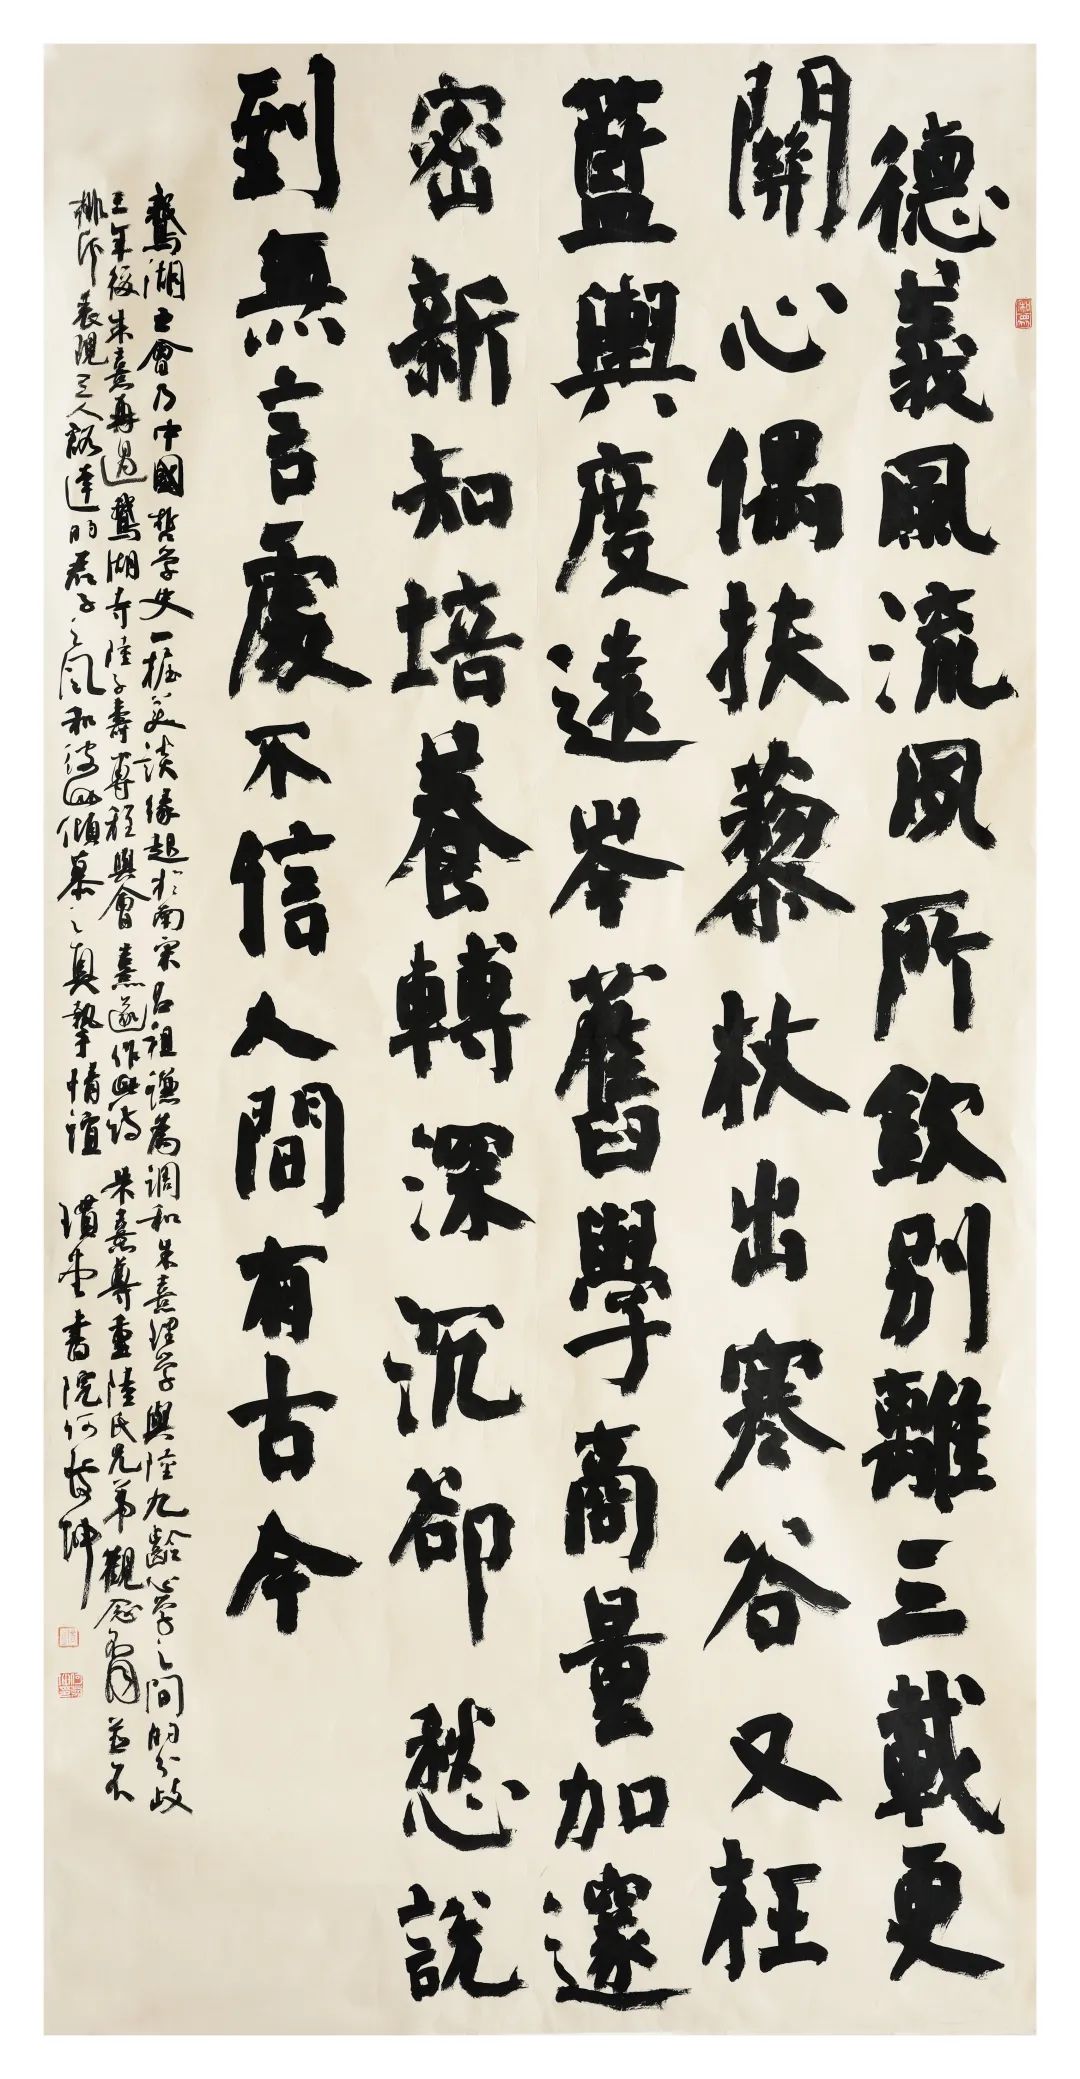 德義風流夙所欽別離三載更
關心偶扶藜杖出寒谷又枉
藍輿度遠岑舊學商量加邃
密新知培養轉深沉卻愁說
到無言處不信人間有古今
鵞湖之會乃中國哲學史一樁美談緣起於南宋呂祖謙為調和朱熹理學與陸九齡心學之間的分歧
三年後朱熹再過鵞湖寺陸子壽專程與會熹遂作此詩朱熹尊重陸氏兄弟觀念有異並不
排斥表現三人豁達的君子之風和彼此傾慕之真摯情誼
書院何